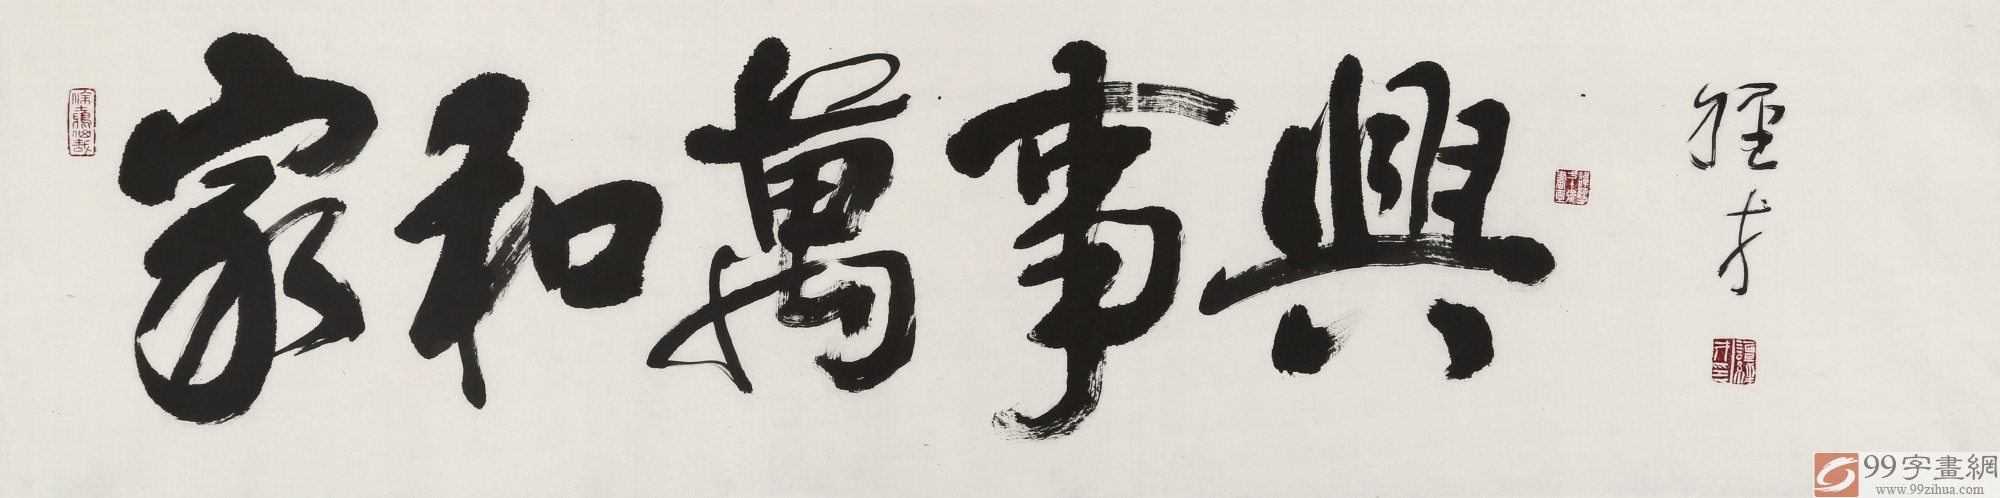 家和萬事興
經才
99字畫網
www.99zihua.com